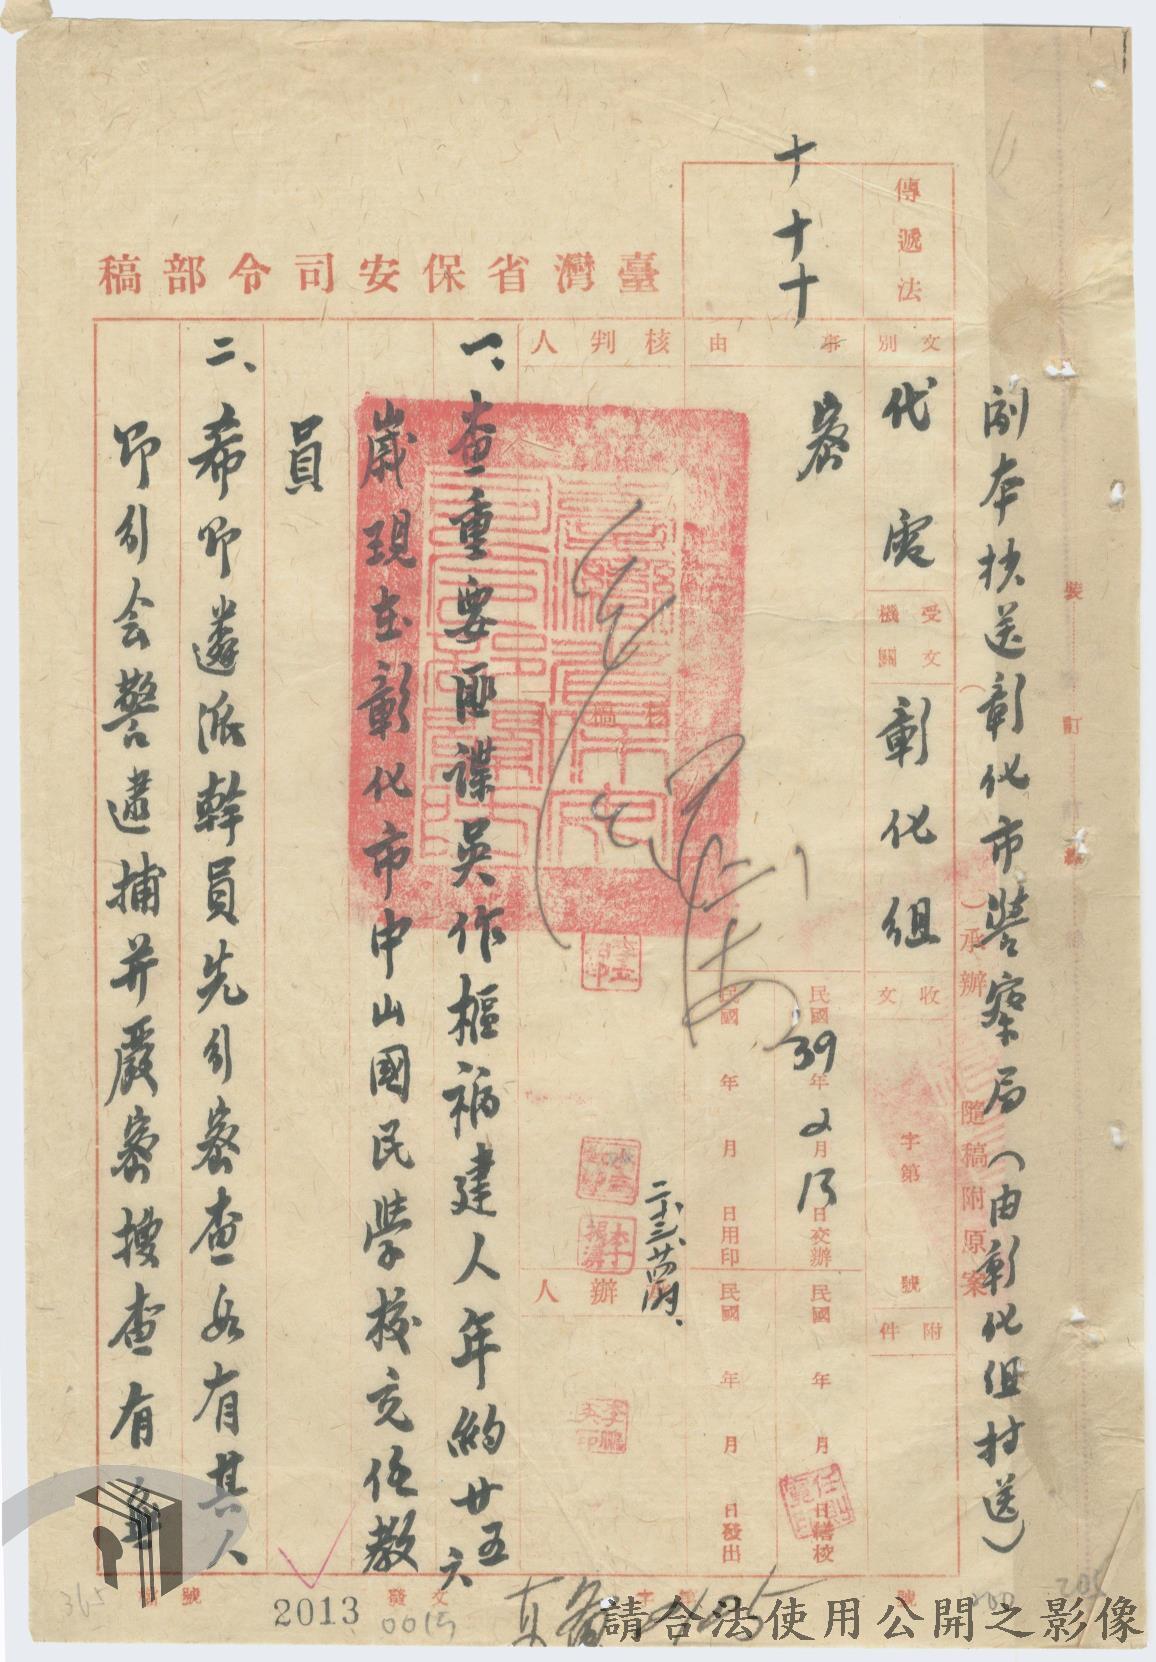 副本抄送彰化市警察局(由彰化組封送)
裝
訂
承辦
隨稿附原案
傳遞法
十十十
臺灣省保安司令部稿
文別
代電
受文機關
彰化組
收文
字第
號
附件
事由
密
民國39年2月13日交辦
民國 年 月 日繕校
民國 年 月 日用印
民國 年 月 日發出
核判人
核稿
辦人
一、查重要匪諜吳作樞福建人年約廿五六
歲現在彰化市中山國民學校充任教
員
二、希即遴派幹員先行密查如有其人
即行會警逮捕并嚴密搜查有無
發文
字第
號
2013
0015
365
200
205
請合法使用公開之影像